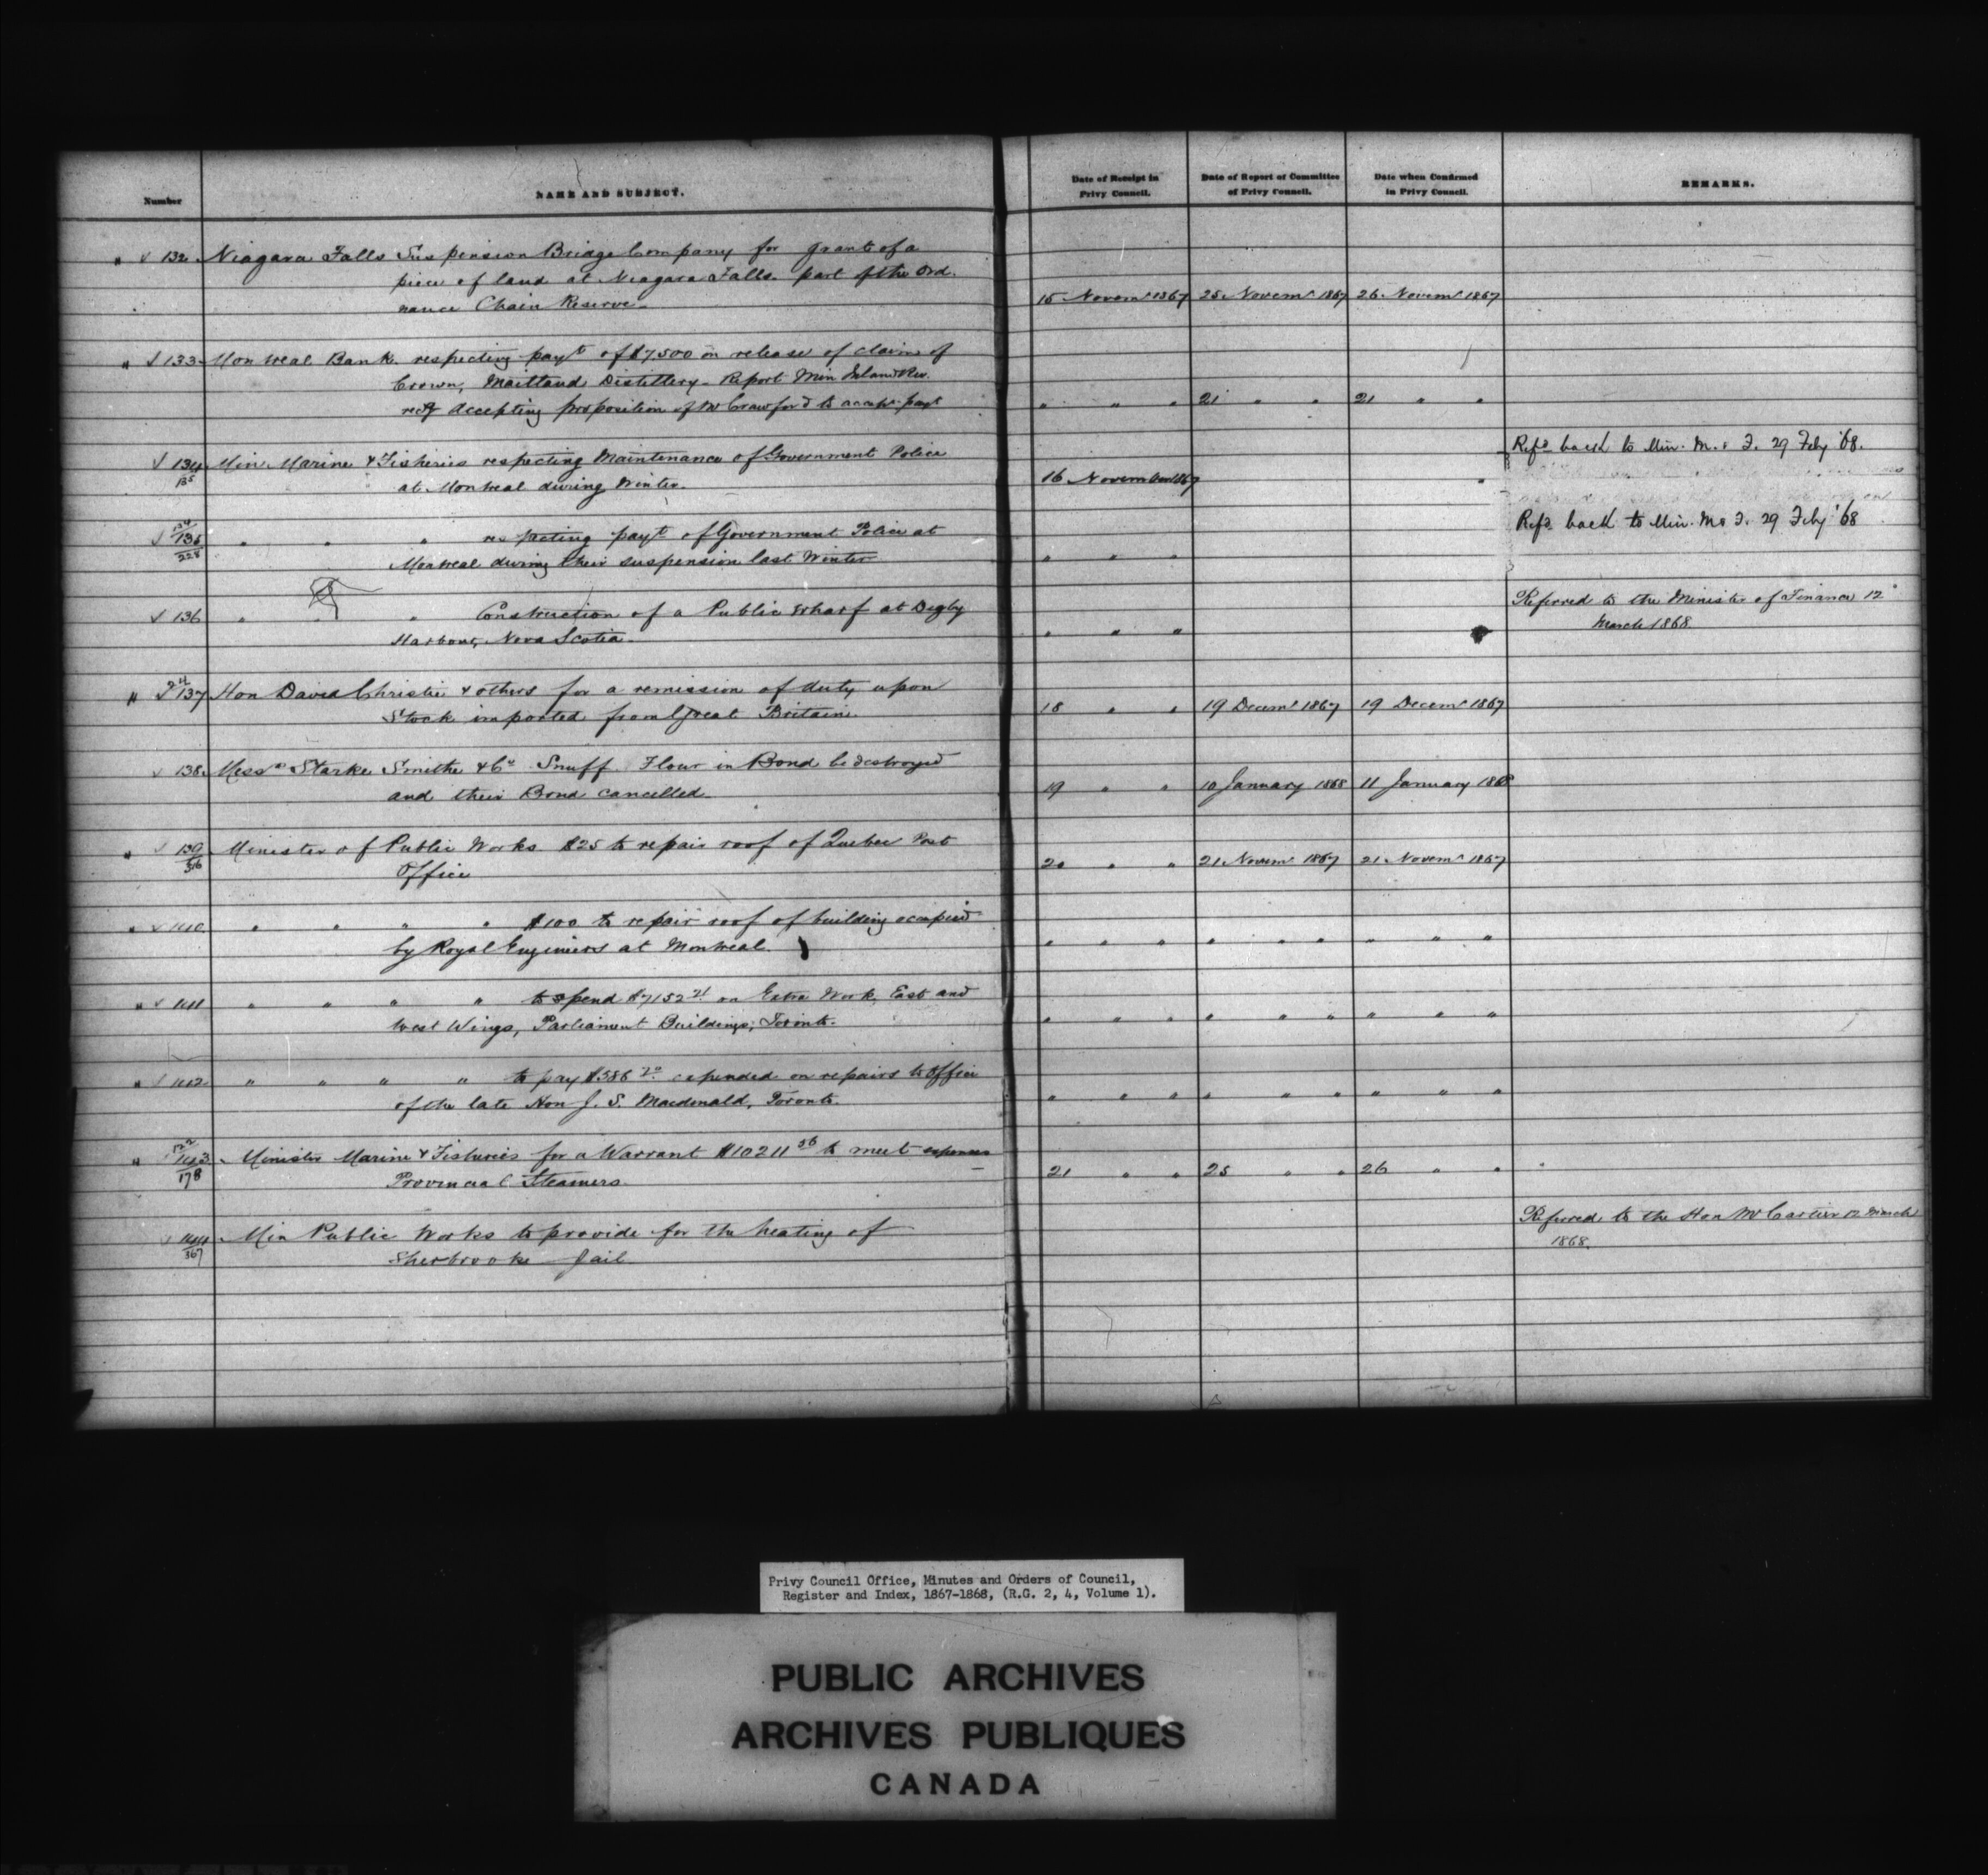 Number
NAME AND SUBJECT.
Date of Receipt in
Privy Council.
Date of Report of Committee
of Privy Council.
Date when Confirmed
in Privy Council.
REMARKS.
" √ 132 Niagara Falls Suspension Bridge Company for grant of a
piece of land at Niagara Falls part of the Ord-
nance Chain Reserve
15 Novemr 1867 25 Novemr 1867 26 Novemr 1867
" √ 133 Montreal Bank respecting payt of $7500 in release of claim of
Crown, Maitland Distillery - Report Min Inland Rev.
accepting proposition of Mr Crawford to payt
" " " 21 " " 21 " "
√ 134 Min. Marine & Fisheries respecting Maintenance of Government Police
135
at Montreal during Winter.
16 November 1867
Refd back to Min. M. & F. 29 Feby '68.
134
√ 135 " " " respecting payt of Government Police at
228
Montreal during their suspension last Winter
" " "
Refd back to Min. M & F. 29 Feby '68
√ 136 " " " Construction of a Public Wharf at Digby
Harbour, Nova Scotia.
" " "
Referred to the Minister of Finance 12
March 1868
" 137 Hon David Christie & others for a remission of duty upon
Stock imported from Great Britain.
18 " " 19 Decemr 1867 19 Decemr 1867
√ 138 Messrs Starke Smithe & Co Snuff Flour in Bond be destroyed
and their Bond cancelled.
19 " " 10 January 1868 11 January 1868
" √ 139 Minister of Public Works $25 to repair roof of Quebec Post
516
Office
20 " " 21 Novemr 1867 21 Novemr 1867
" √ 140 " " " " $100 to repair roof of building occupied
by Royal Engineers at Montreal.
" " " " " " " " "
" √ 141 " " " " to spend $7152 21 on Extra Work, East and
West Wings, Parliament Buildings, Toronto.
" " " " " " " " "
" √ 142 " " " " to pay $386 70 expended on repairs to Office
of the late Hon J. S. Macdonald, Toronto.
" " " " " " " " "
" 143 Minister Marine & Fisheries for a Warrant $10211 56 to meet expenses
178
Provincial Steamers.
21 " " 25 " " 26 " " "
√ 144 Min Public Works to provide for the heating of
367
Sherbrooke Jail
Referred to the Hon Mr Cartier 12 March
1868.
Privy Council Office, Minutes and Orders of Council,
Register and Index, 1867-1868, (R.G. 2, 4, Volume 1).
PUBLIC ARCHIVES
ARCHIVES PUBLIQUES
CANADA